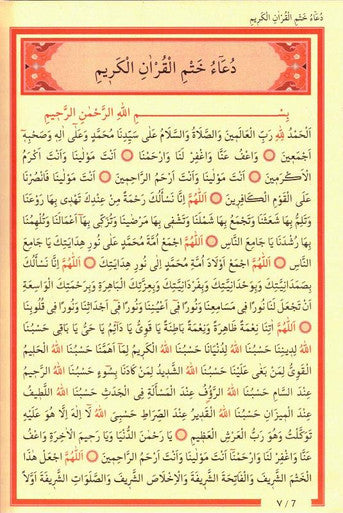 دُعَاءُ خَتْمِ الْقُرْاٰنِ الْكَرِيمِ
دُعَاءُ خَتْمِ الْقُرْاٰنِ الْكَرِيمِ
بِسْمِ اللهِ الرَّحْمٰنِ الرَّحِيمِ
اَلْحَمْدُ لِلّٰهِ رَبِّ الْعَالَمِينَ وَالصَّلَاةُ وَالسَّلَامُ عَلٰى سَيِّدِنَا مُحَمَّدٍ وَعَلٰى اٰلِهِ وَصَحْبِهِ
اَجْمَعِينَ ۞ وَاعْفُ عَنَّا وَاغْفِرْ لَنَا وَارْحَمْنَا ۞ اَنْتَ مَوْلٰينَا وَاَنْتَ اَكْرَمُ
الْاَكْرَمِينَ ۞ اَنْتَ مَوْلٰينَا وَاَنْتَ اَرْحَمُ الرَّاحِمِينَ ۞ اَنْتَ مَوْلٰينَا فَانْصُرْنَا
عَلَى الْقَوْمِ الْكَافِرِينَ ۞ اَللّٰهُمَّ اِنَّا نَسْأَلُكَ رَحْمَةً مِنْ عِنْدِكَ تَهْدِى بِهَا رَوْعَنَا
وَتَلُمُّ بِهَا شَعْثَنَا وَتَجْمَعُ بِهَا شَمْلَنَا وَتَشْفِى بِهَا مَرْضَيْنَا وَتُزَكِّى بِهَا اَعْمَالَنَا وَتُلْهِمُنَا
بِهَا رُشْدَنَا يَا جَامِعَ النَّاسِ ۞ اَللّٰهُمَّ اجْمَعْ اُمَّةَ مُحَمَّدٍ عَلٰى نُورِ هِدَايَتِكَ يَا جَامِعَ
النَّاسِ ۞ اَللّٰهُمَّ اجْمَعْ اَوْلَادَ اُمَّةِ مُحَمَّدٍ اِلٰى نُورِ هِدَايَتِكَ ۞ اَللّٰهُمَّ اِنَّا نَسْأَلُكَ
بِصَمَدَانِيَّتِكَ وَبِوَحْدَانِيَّتِكَ وَبِفَرْدَانِيَّتِكَ وَبِعِزَّتِكَ الْبَاهِرَةِ وَبِرَحْمَتِكَ الْوَاسِعَةِ
اَنْ تَجْعَلَ لَنَا نُورًا فِى مَسَامِعِنَا وَنُورًا فِى اَعْيُنِنَا وَنُورًا فِى اَجْدَاثِنَا وَنُورًا فِى قُلُوبِنَا
۞ اَللّٰهُمَّ اٰتِنَا نِعْمَةً ظَاهِرَةً وَنِعْمَةً بَاطِنَةً يَا قَوِىُّ يَا دَائِمُ يَا حَىُّ يَا بَاقِى حَسْبُنَا
اللهُ لِدِينِنَا حَسْبُنَا اللهُ لِدُنْيَانَا حَسْبُنَا اللهُ الْكَرِيمُ لِمَا اَهَمَّنَا حَسْبُنَا اللهُ الْحَلِيمُ
الْقَوِىُّ لِمَنْ بَغٰى عَلَيْنَا حَسْبُنَا اللهُ الشَّدِيدُ لِمَنْ كَادَنَا بِسُوءٍ حَسْبُنَا اللهُ الرَّحِيمُ
عِنْدَ السَّامِ حَسْبُنَا اللهُ الرَّؤُفُ عِنْدَ الْمَسْأَلَةِ فِى الْجَدَثِ حَسْبُنَا اللهُ اللَّطِيفُ
عِنْدَ الْمِيزَانِ حَسْبُنَا اللهُ الْقَدِيرُ عِنْدَ الصِّرَاطِ حَسْبِىَ اللهُ لَا اِلٰهَ اِلَّا هُوَ عَلَيْهِ
تَوَكَّلْتُ وَهُوَ رَبُّ الْعَرْشِ الْعَظِيمِ ۞ يَا رَحْمٰنَ الدُّنْيَا وَيَا رَحِيمَ الْاٰخِرَةِ وَاعْفُ
عَنَّا وَاغْفِرْ لَنَا وَارْحَمْنَا اَنْتَ مَوْلٰينَا وَاَنْتَ اَرْحَمُ الرَّاحِمِينَ ۞ اَللّٰهُمَّ اجْعَلْ هٰذَا
الْخَتْمَ الشَّرِيفَ وَالْفَاتِحَةَ الشَّرِيفَةَ وَالْاِخْلَاصَ الشَّرِيفَ وَالصَّلَوَاتِ الشَّرِيفَةَ اَوَّلًا
٧ / 7